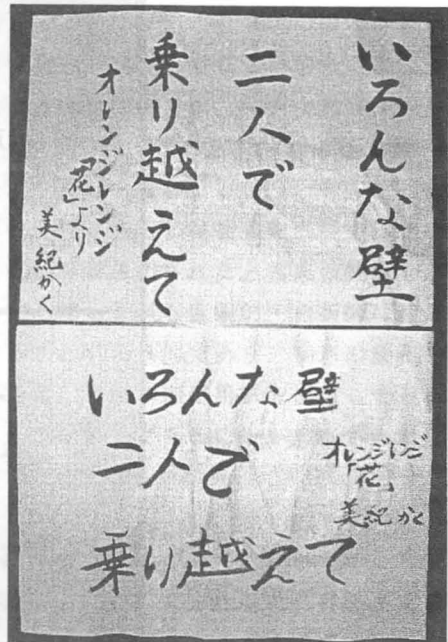 いろんな壁
二人で
乗り越えて
オレンジレンジ
「花」より
美紀かく
いろんな壁
二人で
乗り越えて
オレンジレンジ
「花」
美紀かく